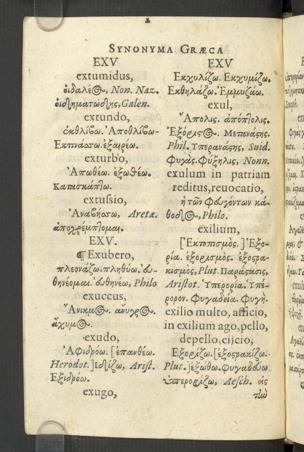 SYNONYMA GRÆCA
EXV
extumidus,
οἰδαλέος, Non. Naz.
οἰδηματώδης, Galen.
extundo,
ἐκθλίβω. Ἀποθλίβω.
Ἐκπινάσσω. ἐξαιρέω.
exturbo,
Ἀπωθέω. ἐξωθέω.
extussio,
Ἀναβήσσω, Aretæ.
ἀποχρέμπτομαι.
EXV.
¶ Exubero,
πλεονάζω. πληθύω,
εὐθηνέω, Philo
exuccus,
Ἄνικμος. ἄνυγρος.
ἄχυμος.
exudo,
Ἀφιδρόω. [ἐπανθέω.
Herodot. ἰδίζω, Arist.
Ἐξιδρόω.
exugo,
EXV
Ἐκχυλίζω. Ἐκχυμίζω.
Ἐκθηλάζω. Ἐκμυζάω.
exul,
Ἄπολις. ἀπόπτολις.
Ἐξόριστος. Μετανάστης.
Phil. Suid.
Φυγάς. Φύξηλις. Nonn.
exulum in patriam
reditus, reuocatio,
ἡ τῶν φευγόντων κά-
θοδος, Philo.
exilium,
[Ἐκτοπισμός.] Ἐξο-
ρία. ἐξορισμός. ἐξοστρα-
κισμός, Plut. Παράστασις,
Aristot. Ὑπερορία.
Φυγαδεία. Φυγή.
exilio multo, afficio,
in exilium ago, pello,
depello, eijcio,
Ἐξορίζω. [ἐξοστρακίζω.
Plut.] ἐξωθω. φυγαδεύω
ὑπερορίζω, Aesch. εἰς
τὴν